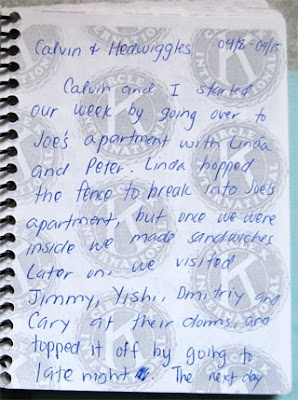 Calvin & Hedwiggles 04/12-04/15
Calvin and I started
our week by going over to
Joe's apartment with Linda
and Peter. Linda hopped
the fence to break into Joe's
apartment, but once we were
inside we made sandwiches
Later on, we visited
Jimmy, Yishi, Dmitriy and
Cary at their dorms, and
topped it off by going to
late night. The next day